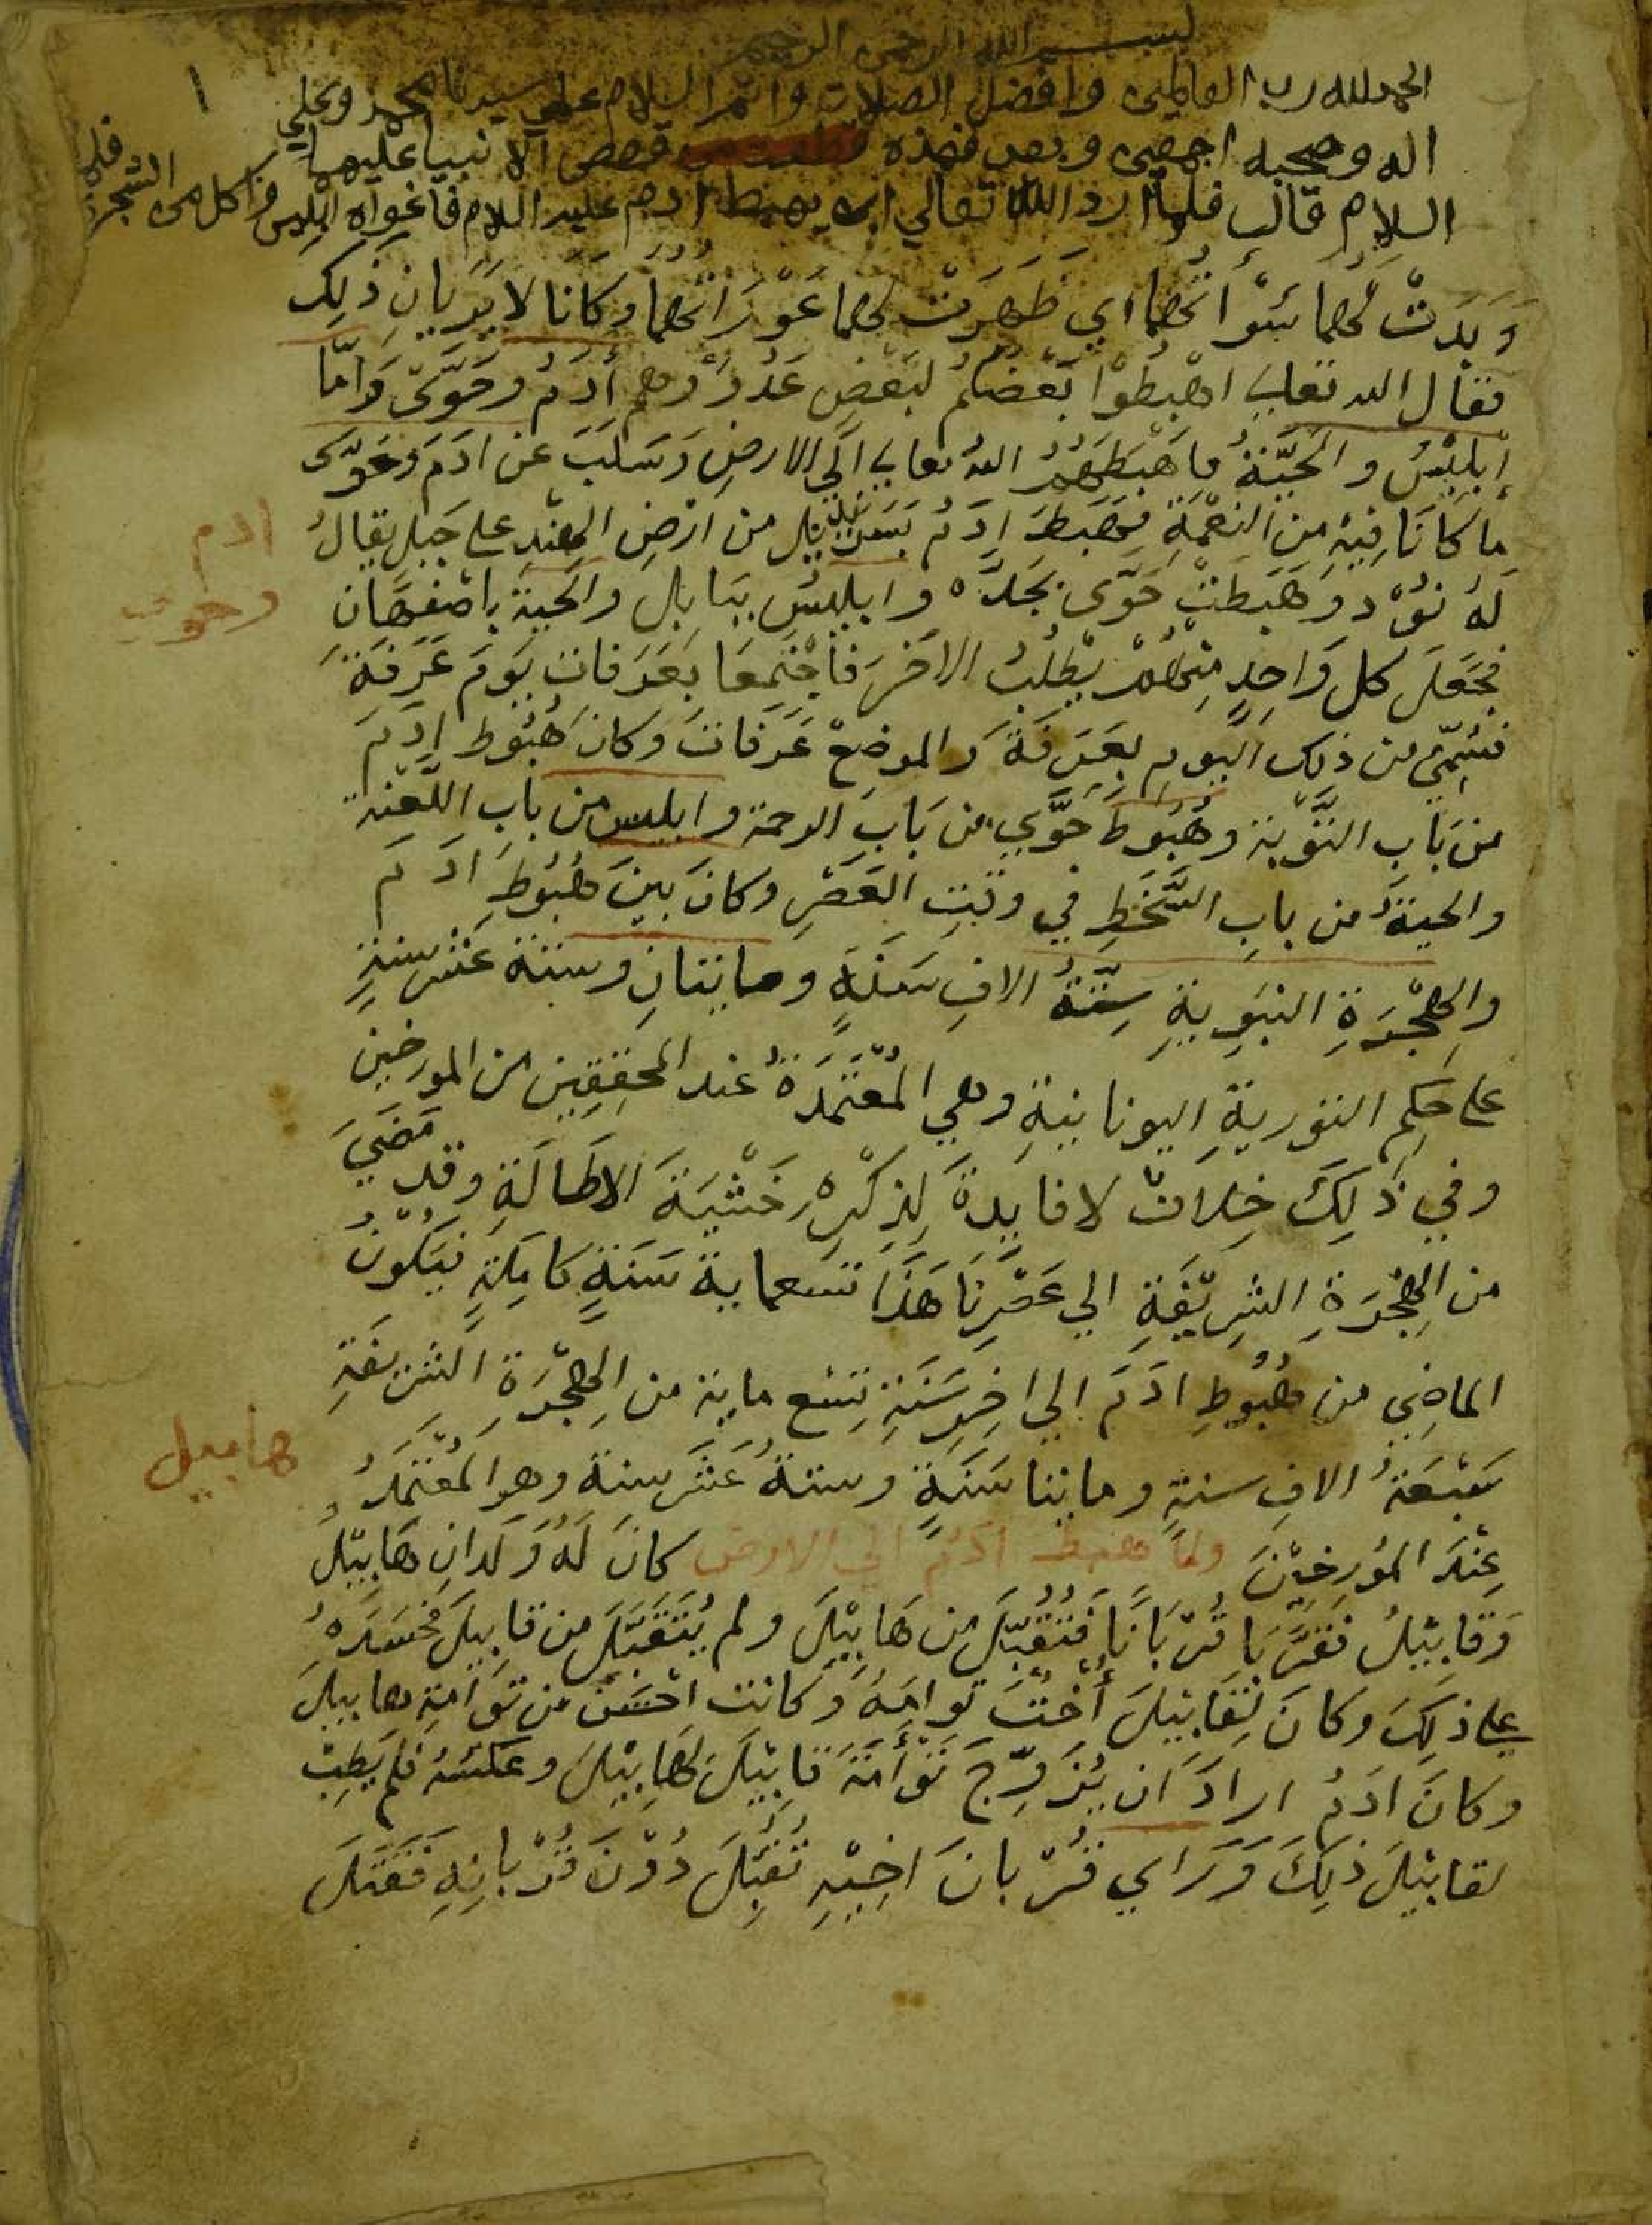 بسم الله الرحمن الرحيم
الحمد لله رب العالمين وافضل الصلات واتم السلام على سيدنا محمد وعلي
اله وصحبه اجمعين وبعد فهذه قصص الانبيا عليهم
السلام قال فلما اراد الله تعالي ان يهبط ادم عليه السلام فاغواه ابليس واكل من الشجرة فلما
وَبَدَتْ لَهُمَا سَوْاتُهُمَا اي ظَهَرَتْ لهما عَوْرَاتُهُمَا وَكَانَا لا يَرَيَانِ ذَلِك
فقال الله تعالي اهْبِطُوْا بَعْضُكُمْ لِبَعْضٍ عَدُوٌ وهم أدَمُ وحَوَّى وَامَّا
إبليْسُ والحَيَّةُ فاهْبَطَهُمُ اللهُ تعالي الَي الارضِ وَسَلَبَ عن ادَمَ وحَوَّى
ما كَانَا فِيْهِ من النعْمَةِ فهَبَطَ ادَمُ بسرنديل من ارْضِ الهِنْدِ على جَبلٍ يقالُ
ادم
وحوى
لَهُ نَوْد وَهَبَطَتْ حَوَّى بجَدَّه وابليسُ ببابل والحية باصْفهَان
فجَعَلَ كل وَاحِدٍ مِنْهُمْ يَطْلُبُ الاخَرَ فاجْتَمَعَا بِعَرَفاتِ يَوْمَ عَرَفَةَ
فسُمِّيَ من ذلك اليوم بِعَرَفَةَ والموضِعْ عَرَفاتْ وكانَ هُبُوْط ادَمَ
من بَابِ التَّوْبة وهُبُوطُ حَوَّي من بَابِ الرحمة وابليس من بابِ اللَّعْنة
والحيةُ من بابِ السَّخَطِ في وقتِ العَصْرِ وكانَ بينَ هُبُوْطِ ادَمَ
والهِجْرَةِ النبَوِيةِ سِتَّةُ الافِ سَنَةٍ ومايتانِ وستة عَشَر سنةٍ
على حُكمِ التورية اليونانيةِ وهي المُعْتَمَدةُ عند المحَقِقِين من المورخين
وفي ذَلِكَ خِلافٌ لا فايدةَ لِذِكْرِهِ خَشْيَةَ الاطَالَةِ وقد مَضَي
من الهِجْرَةِ الشرِيْفَةِ الي عَصْرِنَا هَذَا تسعماية سَنَةٍ كامِلَةٍ فيَكُونُ
الماضِي من هُبُوْطِ ادَمَ الي اخِر سَنَةِ تسع ماية من الهِجْرَةِ الشريفةِ
هابيل
سَبْعَةُ الافِ سنةٍ ومايتا سَنَةٍ وستةُ عَشَر سنة وهو المُعْتَمَدُ
عِنْدَ المُورِخِيْنَ ولما هبط ادم الي الارض كانَ لَهُ وَلَدانِ هَابِيْلُ
وَقابِيْلُ فقَرَّبَا قُرْبَانًا فتُقُبِّلَ من هَابِيْلَ ولم يُتَقَبَّلْ من قابِيلَ فحَسَدَهُ
على ذلِكَ وكانَ لِقَابِيْلَ أُخْتٌ توامَهُ وكانت احْسَن من تَوْامَةِ هابيلَ
وكانَ ادَمُ ارادَ ان يُزَوِّجَ تَوْأمَةَ قابِيْلَ لِهابِيْلَ وعَكْسَهُ فلم يَطِبْ
لقابيْلَ ذلِكَ وَرَاي قُرْبانَ اخِيْهِ تُقُبِّلَ دُوْنَ قُرْبانِهِ فَقَتَلَ